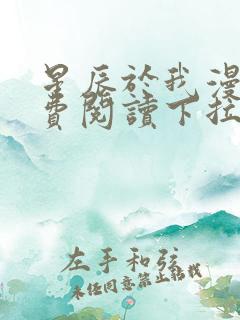 星辰於我漫
費閱讀下拉
左手和弦
未经同意禁止转载